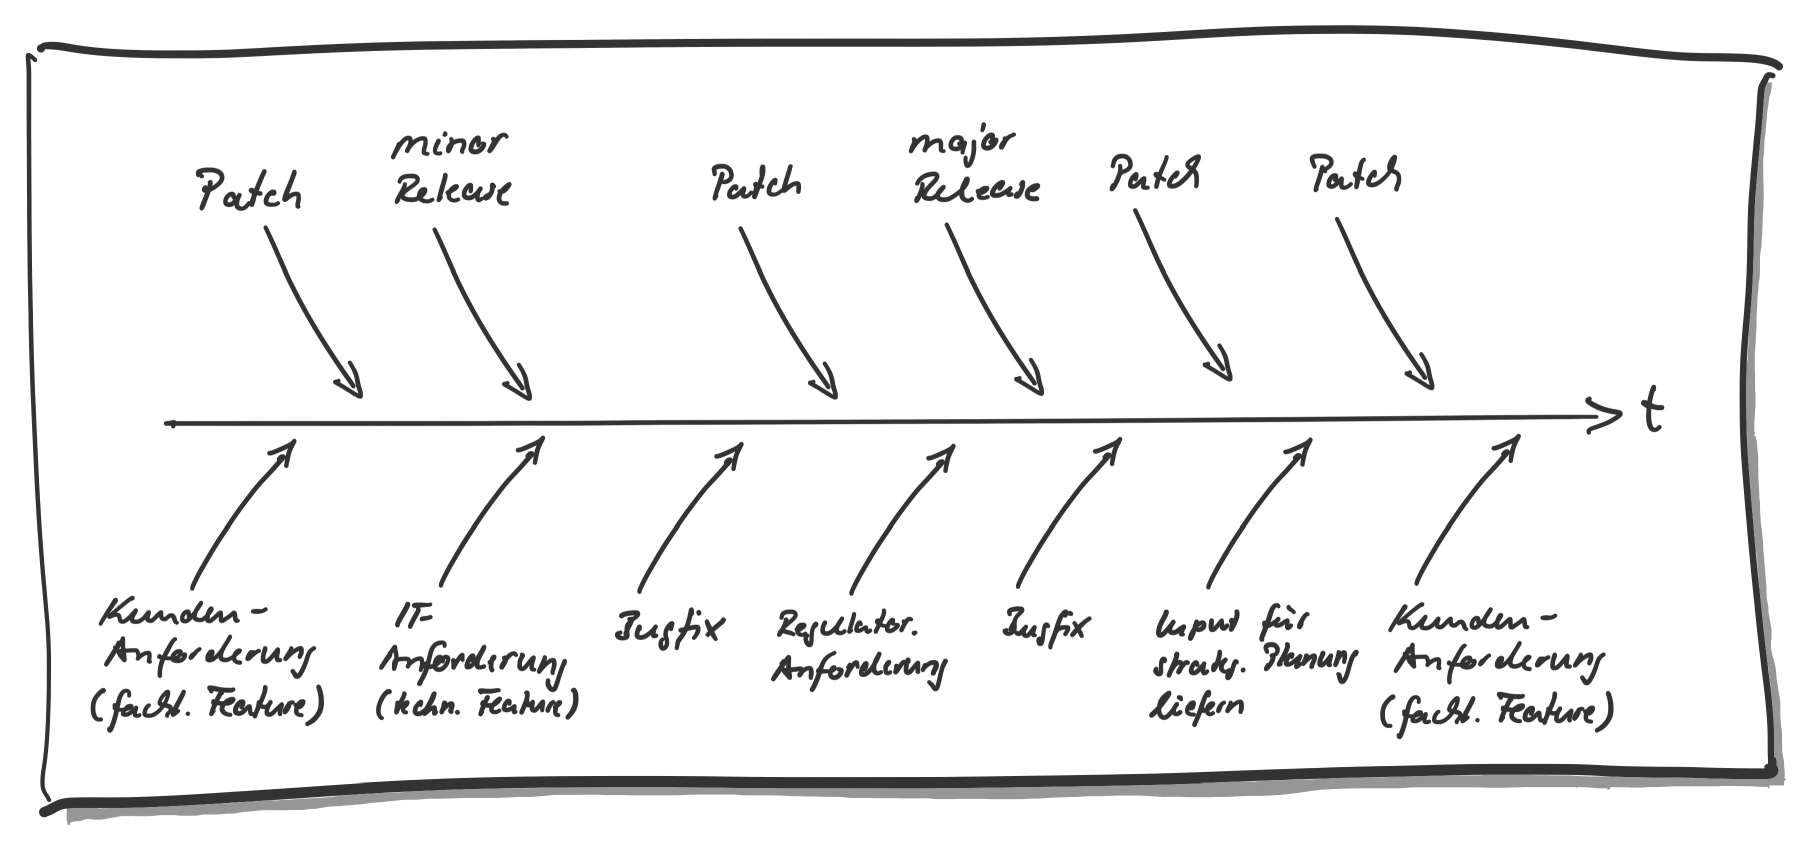 Patch
minor
Release
Patch
major
Release
Patch
Patch
t
Kunden-
Anforderung
(fachl. Feature)
IT-
Anforderung
(techn. Feature)
Bugfix
Regulator.
Anforderung
Bugfix
Input für
strateg. Planung
liefern
Kunden-
Anforderung
(fachl. Feature)